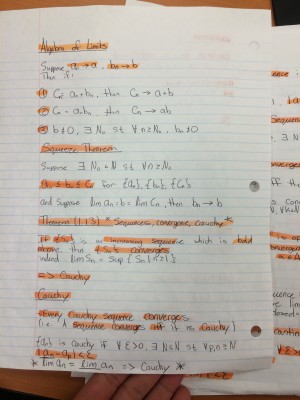 Algebra of Limits
Suppose an → a , bn → b
Then if:
① Cn = an+bn, then Cn → a+b
② Cn = anbn, then Cn → ab
③ b≠0, ∃ N0 st ∀n≥N0, bn≠0
Squeeze Theorem
Suppose ∃ N0 ∈ N st ∀n≥N0
an ≤ bn ≤ Cn for {an}, {bn}, {Cn}
and Suppose lim an = b = lim Cn, then bn → b
Theorem (1.13) * Sequences, convergence, Cauchy *
If {Sn} is an increasing sequence which is bdd
above, then {Sn} converges
indeed lim Sn = Sup { Sn | n≥1 }
=> Cauchy
Cauchy
Every Cauchy sequence converges
(i.e. A sequence converges iff it is Cauchy)
{an} is cauchy if ∀ε>0, ∃N∈N st ∀p,n≥N
|an-ap|<ε
* lim an = lim an => Cauchy *